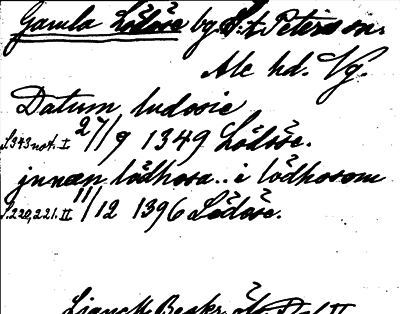 Gamla Lödöse by. S:t Peters sn.
Ale hd. Vg.
Datum ludosie
S.343 not. I 27/9 1349 Lödöse.
jnnæn lödhosa.. i lödhosom
S.220, 221. II 11/12 1396 Lödöse.
Ljanck Beskr. öf.